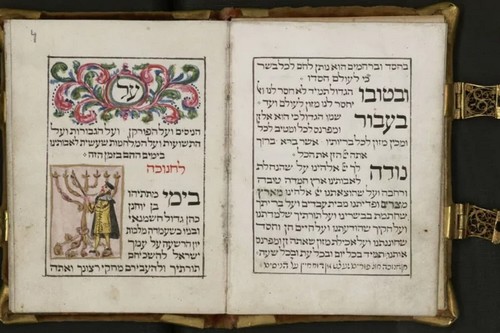 בחסד וברחמים הוא נותן לחם לכל בשר
כי לעולם חסדו
ובטובו הגדול תמיד לא חסר לנו ואל
יחסר לנו מזון לעולם ועד
בעבור שמו הגדול כי הוא אל זן
ומפרנס לכל ומטיב לכל
ומכין מזון לכל בריותיו אשר ברא ברוך
אתה הזן את הכל
נודה לך אלהינו על שהנחלת
לאבותינו ארץ חמדה טובה
ורחבה ועל שהוצאתנו אלהינו מארץ
מצרים ופדיתנו מבית עבדים ועל בריתך
שחתמת בבשרינו ועל תורתך שלמדתנו
ועל חקיך שהודעתנו ועל חיים חן וחסד
שחוננתנו ועל אכילת מזון שאתה זן ומפרנס
אותנו תמיד בכל יום ובכל עת ובכל שעה
על
הניסים ועל הפורקן ועל הגבורות ועל
התשועות ועל המלחמות שעשית לאבותינו
בימים ההם בזמן הזה
לחנוכה
בימי מתתיהו
בן יוחנן
כהן גדול חשמונאי
ובניו כשעמדה מלכות
יון הרשעה על עמך
ישראל להשכיחם
תורתיך ולהעבירם מחקי רצונך ואתה